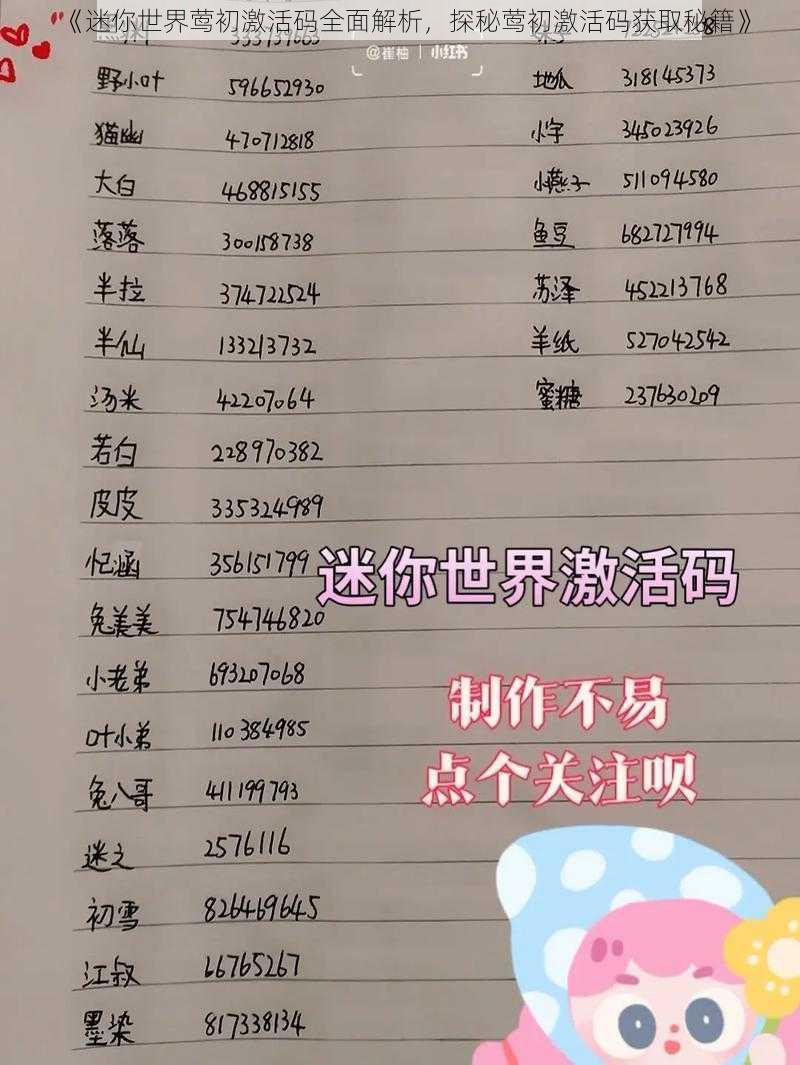 《迷你世界莺初激活码全面解析，探秘莺初激活码获取秘籍》
@崔柚 | 小红书
野小叶 596652930
猫幽 470712818
大白 468815155
落落 300158738
半拉 374722524
半仙 133213732
汤米 42207064
若白 228970382
皮皮 335324989
忆涵 356151799
兔美美 754746820
小老弟 693207068
叶小弟 110384985
兔八哥 411199793
迷之 2576116
初雪 826469645
江叔 66765267
墨染 817338134
地瓜 318145373
小字 345023926
小燕子 511094580
鱼豆 682727994
苏泽 452213768
羊纸 527042542
蜜糖 237630209
迷你世界激活码
制作不易
点个关注呗